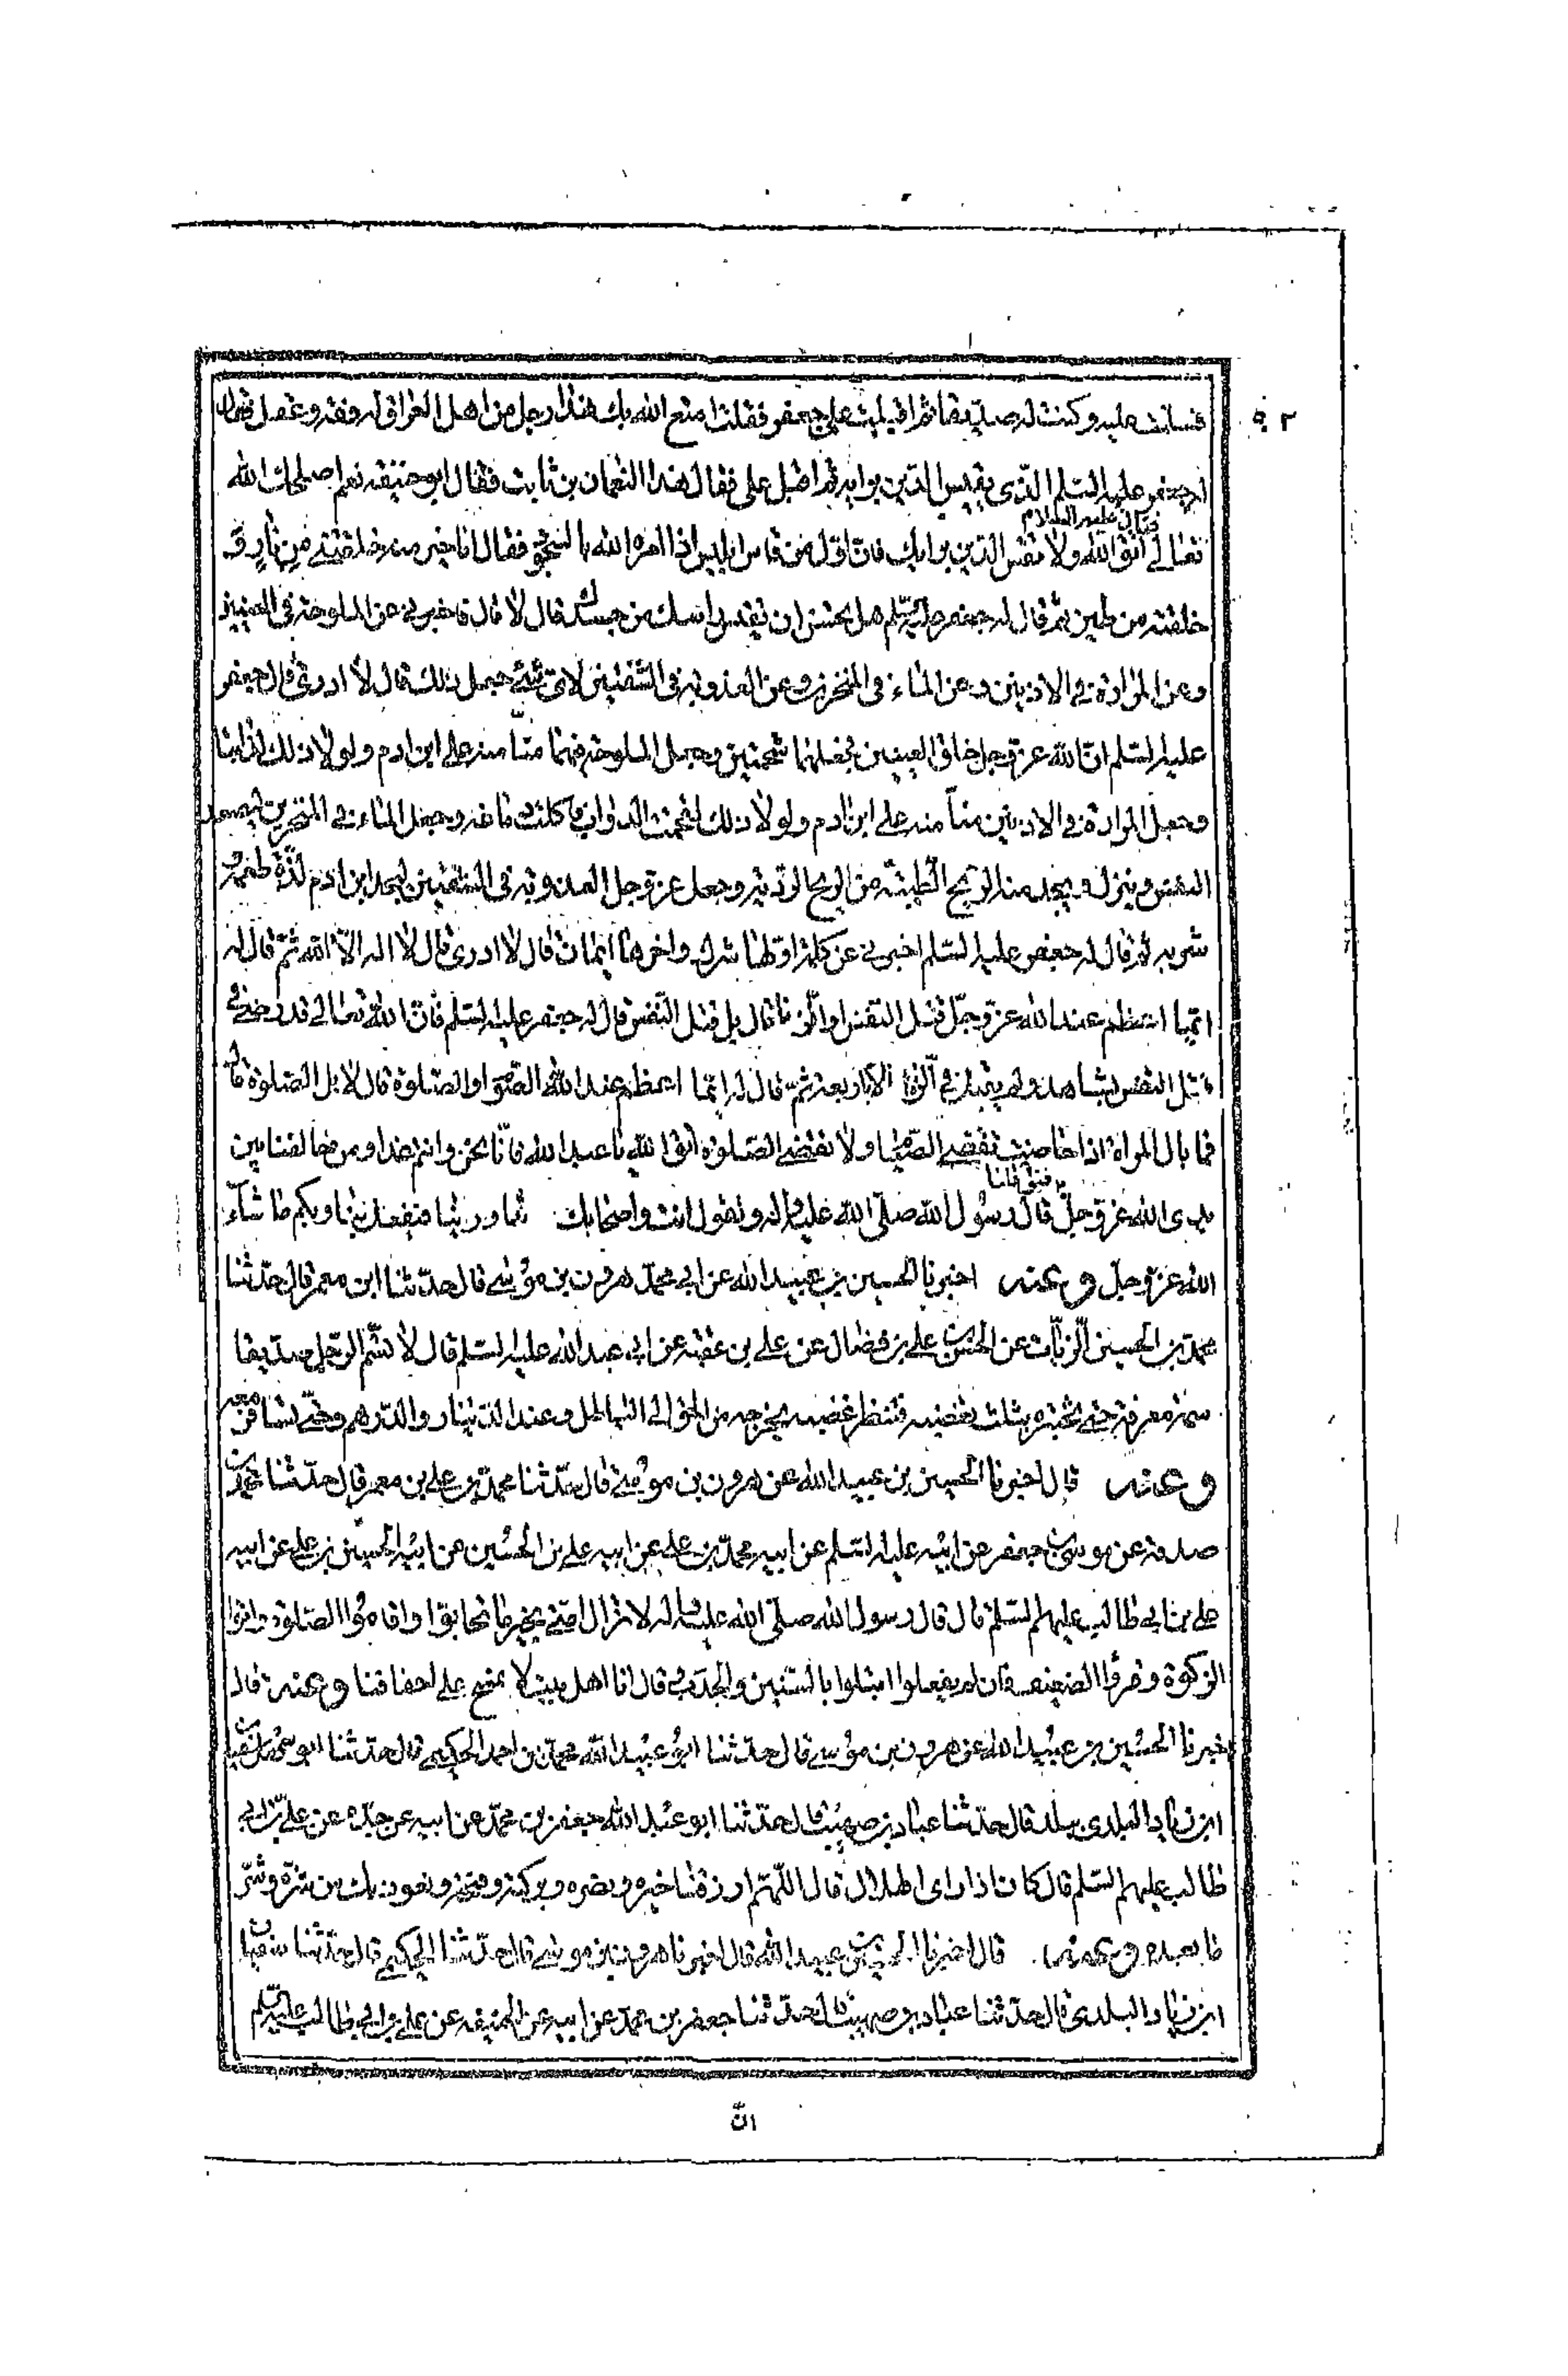 فسلمت عليه وكنت له صديقا ثم اقبلت على جعفر فقلت امتع الله بك هذا رجل من اهل العراق له فقه وعقل فقال
له جعفر عليه السلم الذى يقيس الدين برايه ثم اقبل على فقال هذا النعمان بن ثابت فقال ابو حنيفه نعم اصلحك الله
فقال عليه السلام
تعالى اتق الله ولا تقس الدين برايك فان اول من قاس ابليس اذا امره الله بالسجود فقال انا خير منه خلقتنى من نار و
خلقته من طين ثم قال له جعفر عليه السلم هل تحسن ان تقيس راسك من جسدك قال لا قال فاخبرنى عن الملوحة فى العينين
وعن المرارة فى الاذنين وعن الماء فى المنخرين وعن العذوبة فى الشفتين لاى شئ جعل ذلك قال لا ادرى قال جعفر
عليه السلم ان الله عز وجل خلق العينين فجعلهما شحمتين وجعل الملوحة فيهما منا منه على ابن ادم ولولا ذلك لذابتا
وجعل المرارة فى الاذنين منا منه على ابن ادم ولولا ذلك لهجمت الدواب فاكلت دماغه وجعل الماء فى المنخرين ليصعد
النفس وينزل ويجد منه الريح الطيبة من الريح الردية وجعل عز وجل العذوبة فى الشفتين ليجد ابن ادم لذة طعمه و
شربه ثم قال له جعفر عليه السلم اخبرنى عن كلمة اولها شرك واخرها ايمان قال لا ادرى قال لا اله الا الله ثم قال له
ايما اعظم عند الله عز وجل قتل النفس او الزنا قال بل قتل النفس قال له جعفر عليه السلم فان الله تعالى قد رضى فى
قتل النفس بشاهدين ولم يقبل فى الزنا الا باربعة ثم قال له ايما اعظم عند الله الصوم او الصلوة قال لا بل الصلوة قال
فما بال المراة اذا حاضت تقضى الصيام ولا تقضى الصلوة اتق الله يا عبد الله فانا نحن وانتم غدا ومن خالفنا بين
فنقول قلنا
يدى الله عز وجل قال رسول الله صلى الله عليه واله وتقول انت واصحابك راينا فيفعل بنا وبكم ما شاء
الله عز وجل وعنه اخبرنا الحسين بن عبيد الله عن ابى محمد هرون بن موسى قال حدثنا ابن معمر قال حدثنا
محمد بن الحسين الزيات عن الحسن بن على بن فضال عن على بن عقبة عن ابى عبد الله عليه السلم قال لا تسم الرجل صديقا
سمة معرفة حتى تختبره بثلث تغضبه فتنظر غضبه يخرجه من الحق الى الباطل وعند الدينار والدرهم وحتى تسافر معه
وعنه قال اخبرنا الحسين بن عبيد الله عن هرون بن موسى قال حدثنا محمد بن على بن معمر قال حدثنا
صدقة عن موسى بن جعفر عن ابيه عليه السلم عن ابيه محمد بن على عن ابيه على بن الحسين عن ابيه الحسين بن على عن ابيه
على بن ابى طالب عليهم السلم قال قال رسول الله صلى الله عليه واله لا تزال امتى بخير ما تحابوا واقاموا الصلوة واتوا
الزكوة وقروا الضيف فان لم يفعلوا ابتلوا بالسنين والجدب قال انا اهل بيت لا نمسح على اخفافنا وعنه قال
اخبرنا الحسين بن عبيد الله عن هرون بن موسى قال حدثنا ابو عبيد الله محمد بن احمد الحكيمى قال حدثنا
ابن زياد البلدى ببلد قال حدثنا عباد بن صهيب قال حدثنا ابو عبد الله جعفر بن محمد عن ابيه عن جده عن على بن ابى
طالب عليهم السلم قال كان اذا راى الهلال قال اللهم ارزقنا خيره ونصره وبركته وفتحه ونعوذ بك من شره وشر
ما بعده وعنه قال اخبرنا الحسين بن عبيد الله قال اخبرنا هرون بن موسى قال حدثنا الحكيمى قال حدثنا سفيان
ابن زياد البلدى قال حدثنا عباد بن صهيب قال حدثنا جعفر بن محمد عن ابيه عن عن على بن ابى طالب عليه السلم
ان